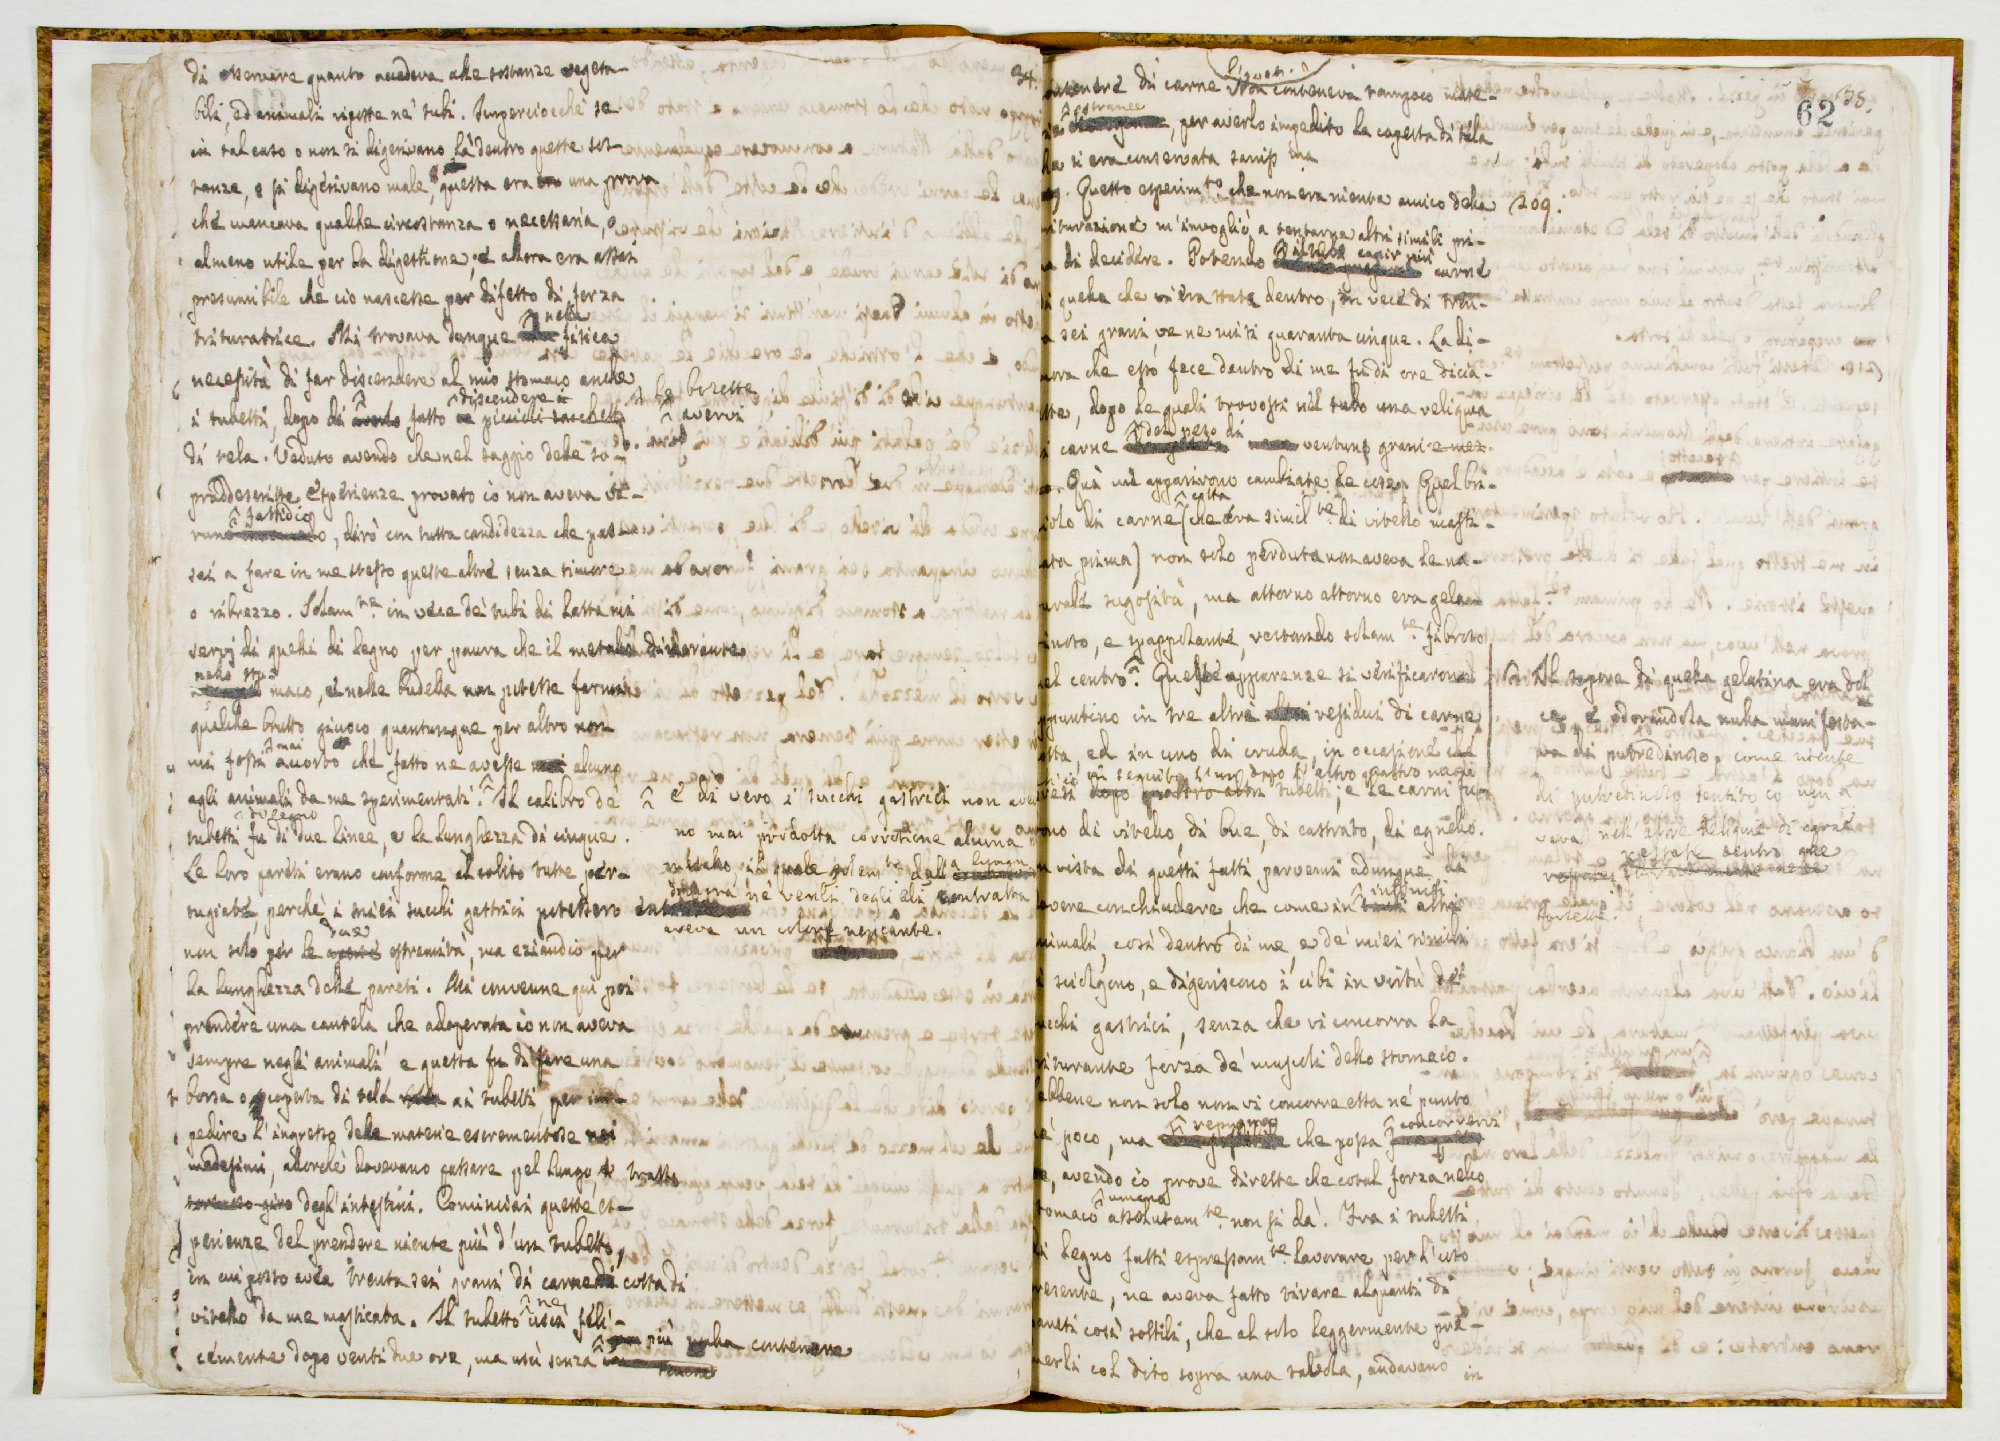 di osservare quanto accadeva alle sostanze vegeta-
bili, ed animali riposte ne' tubi. Imperciocchè se
in tal caso o non si digerivano là dentro queste sos-
tanze, o si digerivano male, questa era una prova
che mancava qualche circostanza o necessaria, o
almeno utile per la digestione, e allora era assai
presumibile che ciò nascesse per difetto di forza
trituratrice. Mi trovava dunque nella fisica
necessità di far discendere al mio stomaco anche
i tubetti, dopo di avervi fatto discendere le borsette
di tela. Veduto avendo che nel saggio delle so-
praddescritte esperienze provato io non aveva ve-
run fastidio, dirò con tutta candidezza che pas-
sai a fare in me stesso queste altre senza timore
o ribrezzo. Solam.te in vece de' tubi di latta mi
servj di quelli di legno per paura che il metallo dimorante
nello sto-
maco, e nelle budella non potesse farmi
qualche brutto giuoco quantunque per altro non
mi fossi mai accorto che fatto ne avesse alcuno
agli animali da me sperimentati. Il calibro de'
tubetti di legno fu di due linee, e la lunghezza di cinque.
Le loro pareti erano conforme il solito tutte per-
tugiate, perchè i miei succhi gastrici potessero entrare
non solo per le due estremità, ma eziandio per
la lunghezza delle pareti. Mi convenne qui poi
prendere una cautela, che adoperata io non aveva
sempre negli animali, e questa fu di fare una
borsa o coperta di tela ai tubetti, per im-
pedire l'ingresso delle materie escrementose nei
medesimi, allorchè dovevano passare pel lungo tratto
degl'intestini. Cominciai queste es-
perienze del prendere niente più d'un tubetto,
in cui posto avea trenta sei grani di carne cotta di
vitello da me masticata. Il tubetto ne uscì feli-
cemente dopo venti due ore, ma uscì senza più nulla contenere
È di vero i succhi gastrici non ave
no mai prodotta corrozione alcuna
aveva un colore nericante.
34.
62
35.
contenere di carne. Non conteneva tampoco mate-
rie estranee, per averlo impedito la coperta di tela
la si era conservata saniss.ma
209. Questo esperim.to che non era niente amico della
triturazione m'invogliò a tentarne altri simili pri-
ma di decidere. Potendo il tubo capir più carne
di quella che vi era stata dentro, in vece di tren-
ta sei grani, ve ne misi quaranta cinque. La di-
mora che esso fece dentro di me fu di ore dicia-
sette, dopo le quali trovossi nel tubo una reliquia
di carne del peso di ventuno grani e mez-
zo. Quì mi apparirono cambiate le cose. Quel bri-
ciolo di carne cotta (che era simil.te di vitello masti-
cata prima) non solo perduta non aveva la na-
turale sugosità, ma attorno attorno era gela-
tinoso, e spappolante, restando solam.te fibroso
nel centro. Queste apparenze si verificarono
appuntino in tre altri residui di carne
cotta, ed in uno di cruda, in occasione che
presi in seguito l'un dopo l'altro quattro nuovi
tubetti; e le carni fu-
rono di vitello, di bue, di castrato, di agnello.
In vista di questi fatti parvemi adunque di
dovere conchiudere che come in infiniti altri
animali, così dentro di me, e de' miei simili
si sciolgono, e digeriscono i cibi in virtù de'
succhi gastrici, senza che vi concorra la
triturante forza de' muscoli dello stomaco.
Sebbene non solo non vi concorre essa nè punto
nè poco, ma repugna che possa concorrervi,
avendo io prove dirette che cotal forza nello
stomaco umano assolutam.te non si dà. Fra i tubetti
di legno fatti espressam.te lavorare per l'uso
presente, ne aveva fatto tirare alquanti di
pareti così sottili, che al solo leggermente pre-
merli col dito sopra una tavola, andavano in
209.
Il sapore di quella gelatina era dol
ce, e odorandola nulla manifesta-
va di putredinoso, come niente
di putredinoso sentito io non a
veva nell'altre reliquie di carne
restate dentro alle
borsette.